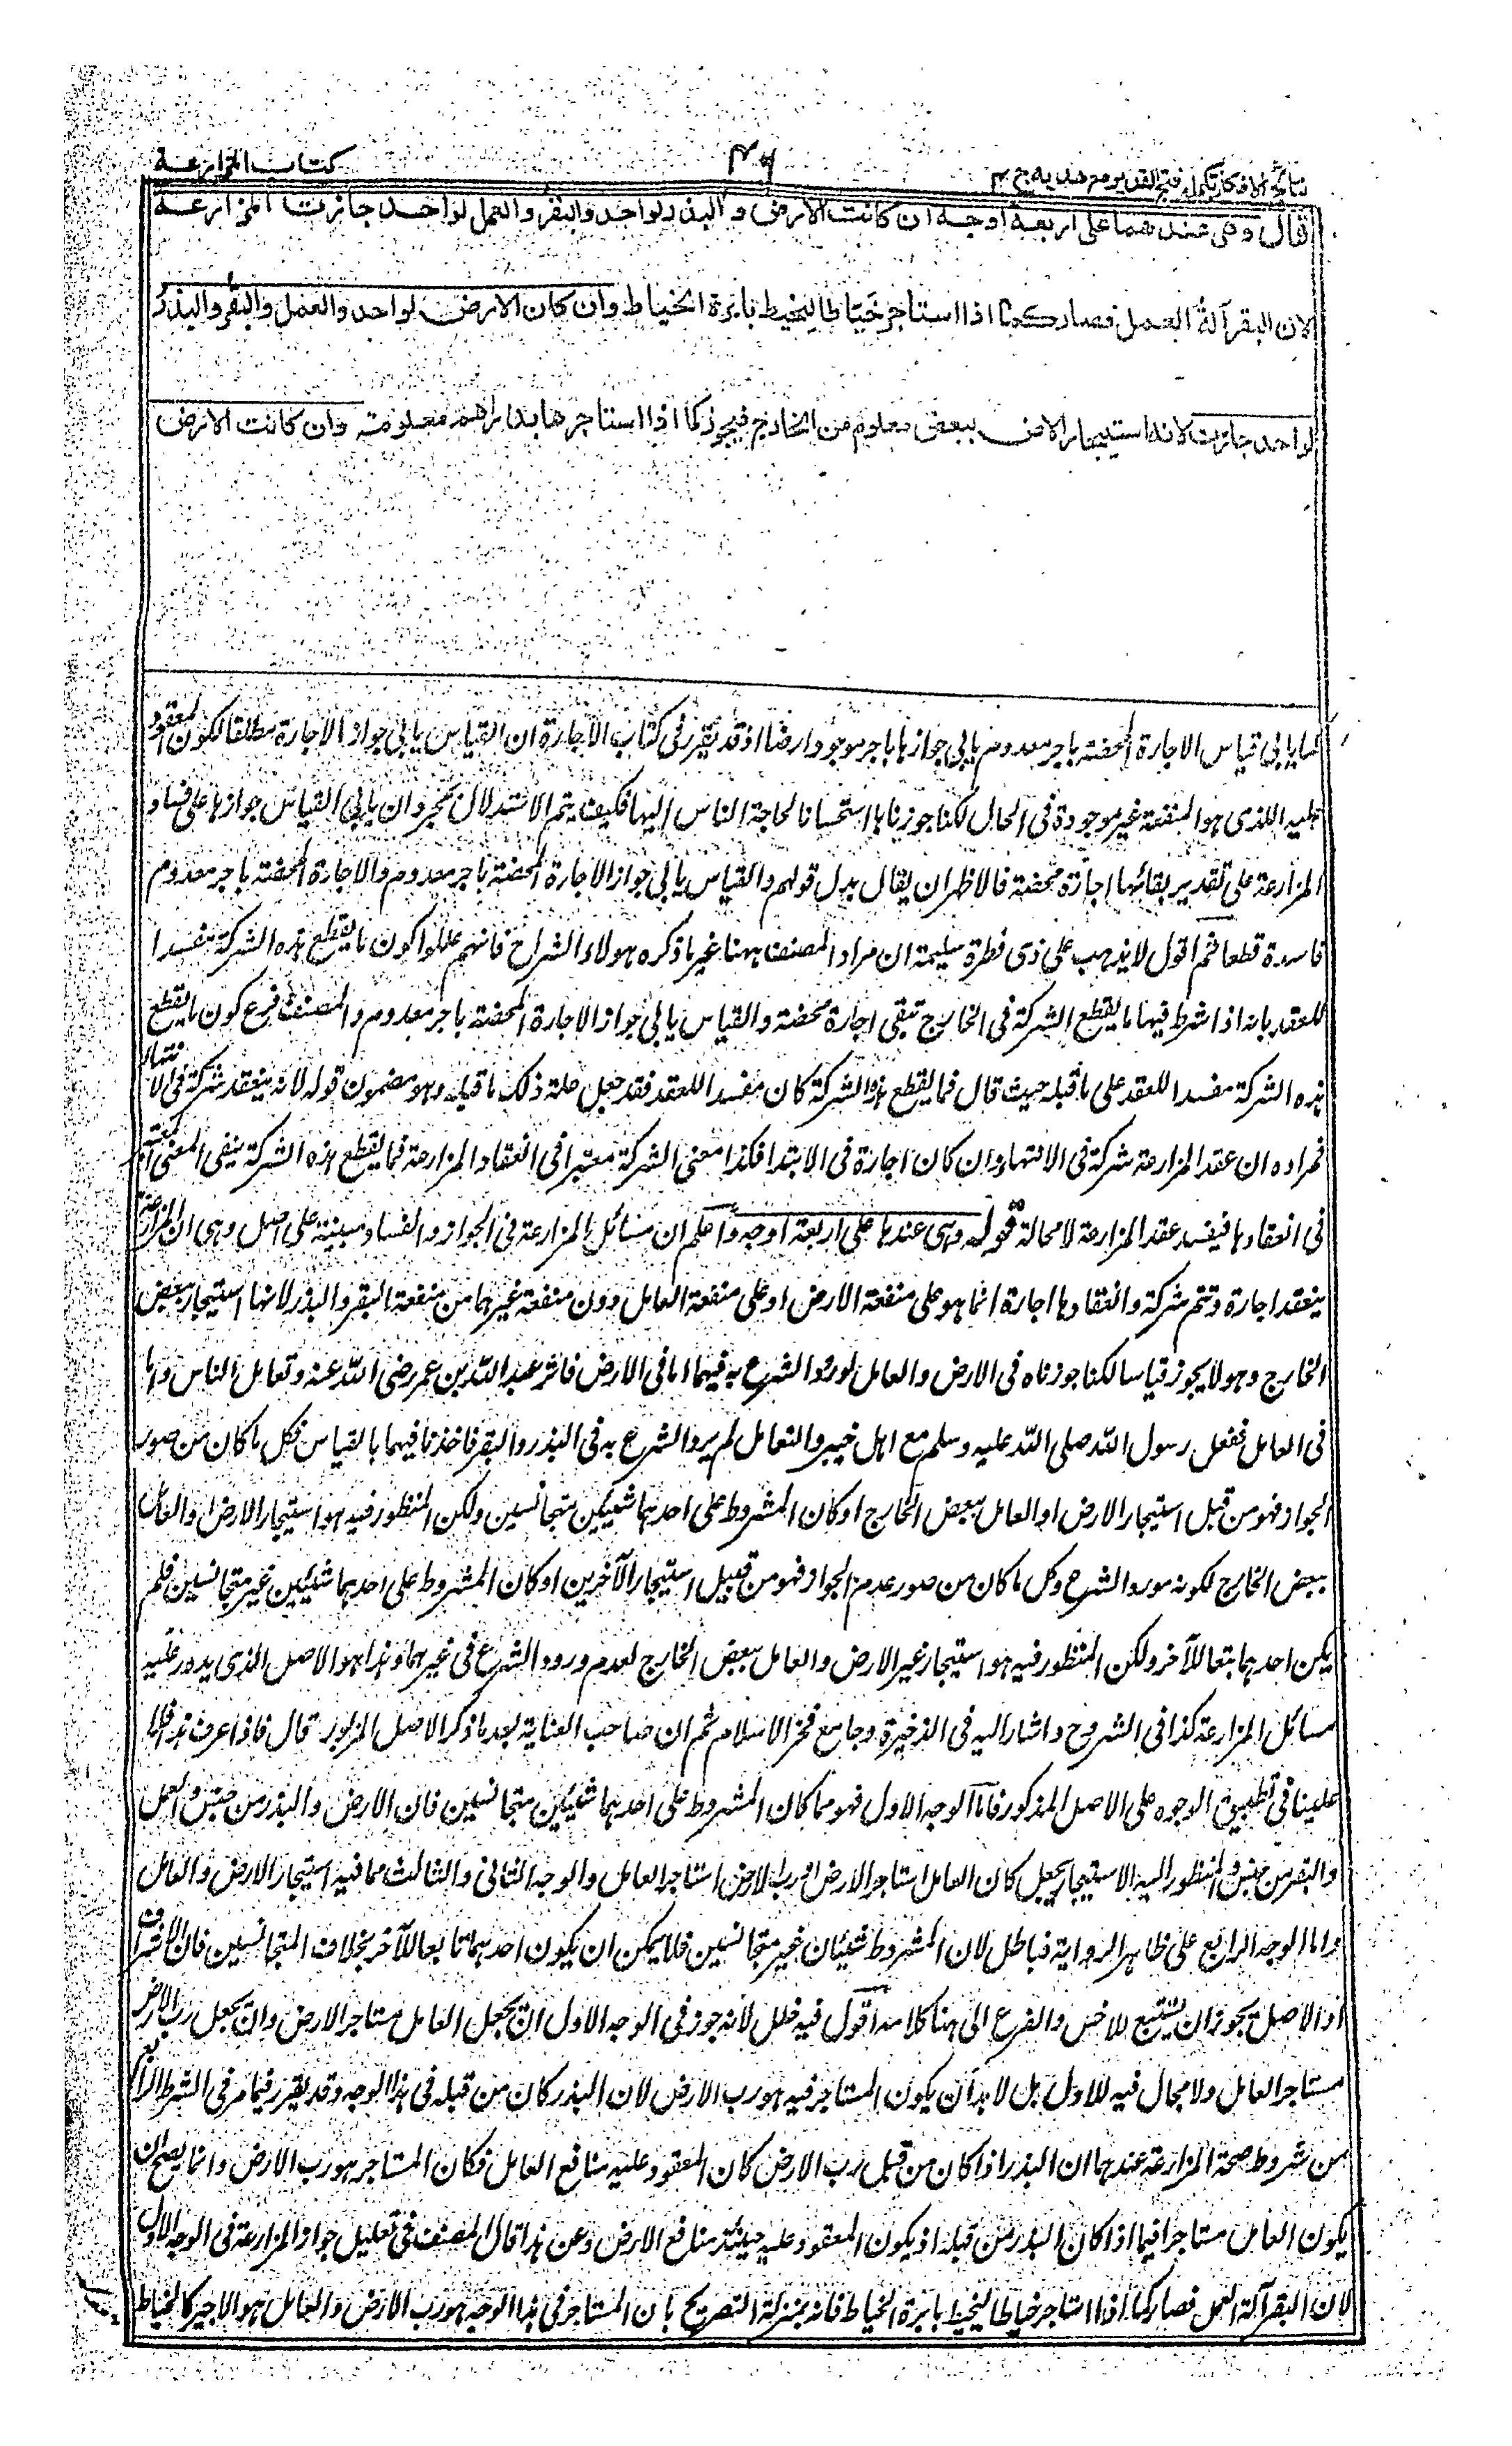 نتائج الافكار تكملہ فتح القدير مع هدايہ ج ٤
٤٦
كتاب المزارعة
قال وهى عندهما على اربعة اوجه ان كانت الارض والبذر لواحد والبقر والعمل لواحد جازت المزارعة
لان البقر آلة العمل فصار كما اذا استأجر خياطا ليخيط بابرة الخياط وان كان الارض لواحد والعمل والبقر والبذر
لواحد جازت لانه استيجار الارض ببعض معلوم من الخارج فيجوز كما اذا استاجرها بدراهم معلومة وان كانت الارض
كما يابى قياس الاجارة المحضة باجر معدوم يابى جوازها باجر موجود ارضا اذ قد تقرر فى كتاب الاجارة ان القياس يابى جواز الاجارة مطلقا لكون المعقود
عليه الذى هو المنفعة غير موجودة فى الحال لكنا جوزناها استحسانا لحاجة الناس اليها فكيف يتم الاستدلال بمجرد ان يابى القياس جوازها على فساد
المزارعة على تقدير بقائها اجازة محضة فالاظهر ان يقال بدل قولهم والقياس يابى جواز الاجارة المحضة باجر معدوم والاجارة المحضة باجر معدوم
فاسدة قطعا ثم اقول لا يذهب على ذى فطرة سليمة ان مراد المصنف ههنا غير ما ذكره هولاء الشراح فانهم عللوا كون ما يقطع هذه الشركة مفسدا
للعقد بانه اذا شرط فيها ما يقطع الشركة فى الخارج تبقى اجارة محضة والقياس يابى جواز الاجارة المحضة باجر معدوم والمصنف فرع كون ما يقطع
هذه الشركة مفسدا للعقد على ما قبله حيث قال فما يقطع هذه الشركة كان مفسدا للعقد فقد جعل علة ذلك ما قبله وهو مضمون قوله لانه ينعقد شركة فى الانتهاء
فمراده ان عقد المزارعة شركة فى الانتهاء وان كان اجارة فى الابتدا فكذا معنى الشركة معتبرا فى انعقاد المزارعة فما يقطع هذه الشركة ينفى المعنى المعتبر
فى انعقادها فيفسد عقد المزارعة لا محالة قوله وهى عندها على اربعة اوجه واعلم ان مسائل المزارعة فى الجواز والفساد مبنية على اصل وهى ان المزارعة
ينعقد اجارة وتتم شركة وانعقادها اجارة انما هو على منفعة الارض او على منفعة العامل دون منفعة غيرهما من منفعة البقر والبذر لانها استيجار ببعض
الخارج وهو لا يجوز قياسا لكنا جوزناه فى الارض والعامل لورود الشرع به فيهما اما فى الارض فاثر عبد الله بن عمر رضى الله عنه وتعامل الناس واما
فى العامل ففعل رسول الله صلى الله عليه وسلم مع اهل خيبر والتعامل لم يرد الشرع به فى البذر والبقر فاخذنا فيهما بالقياس فكل ما كان من صور
الجواز فهو من قبل استيجار الارض او العامل ببعض الخارج او كان المشروط على احدهما شيئين متجانسين ولكن المنظور فيه هو استيجار الارض والعامل
ببعض الخارج لكونه مورد الشرع وكل ما كان من صور عدم الجواز فهو من قبيل استيجار الآخرين او كان المشروط على احدهما شيئين غير متجانسين فلم
يكن احدهما تبعا للآخر ولكن المنظور فيه هو استيجار غير الارض والعامل ببعض الخارج لعدم ورود الشرع فى غيرهما وهذا هو الاصل الذى يدور عليه
مسائل المزارعة كذا فى الشروح واشار اليه فى الذخيرة وجامع فخر الاسلام ثم ان صاحب العناية بعد ما ذكر الاصل المزبور قال فاذا عرف هذا فلا
علينا فى تطبيق الوجوه على الاصل المذكور فاما الوجه الاول فهو مما كان المشروط على احدهما شيئين متجانسين فان الارض والبذر من جنس والعمل
والبقر من جنس والمنظور اليه الاستيجار يجعل كان العامل استاجر الارض او رب الارض استاجر العامل والوجه الثانى والثالث مما فيه استيجار الارض والعامل
واما الوجه الرابع على ظاهر الرواية فباطل لان المشروط شيئان غير متجانسين فلا يمكن ان يكون احدهما تابعا للآخر بخلاف المتجانسين فان الاشرف
او الاصل يجوز ان يستتبع للاخس والفرع الى هنا كلامه اقول فيه خلل لانه جوز فى الوجه الاول ان يجعل العامل مستاجر الارض وان يجعل رب الارض
مستاجر العامل ولا مجال فيه للاول بل لا بد ان يكون المستاجر فيه هو رب الارض لان البذر كان من قبله فى هذا الوجه وقد تقرر فيما مر فى الشرط الرابع
من شروط صحة المزارعة عندهما ان البذر اذا كان من قبل رب الارض كان المعقود عليه منافع العامل فكان المستاجر هو رب الارض وانما يصح ان
يكون العامل مستاجرا فيما اذا كان البذر من قبله اذ يكون المعقود عليه حينئذ منافع الارض وعن هذا قال المصنف فى تعليل جواز المزارعة فى الوجه الاول
لان البقر آلة العمل فصار كما اذا استاجر خياطا ليخيط بابرة الخياط فانه بمنزلة التصريح بان المستاجر فى هذا الوجه هو رب الارض والعامل هو الاجير كالخياط